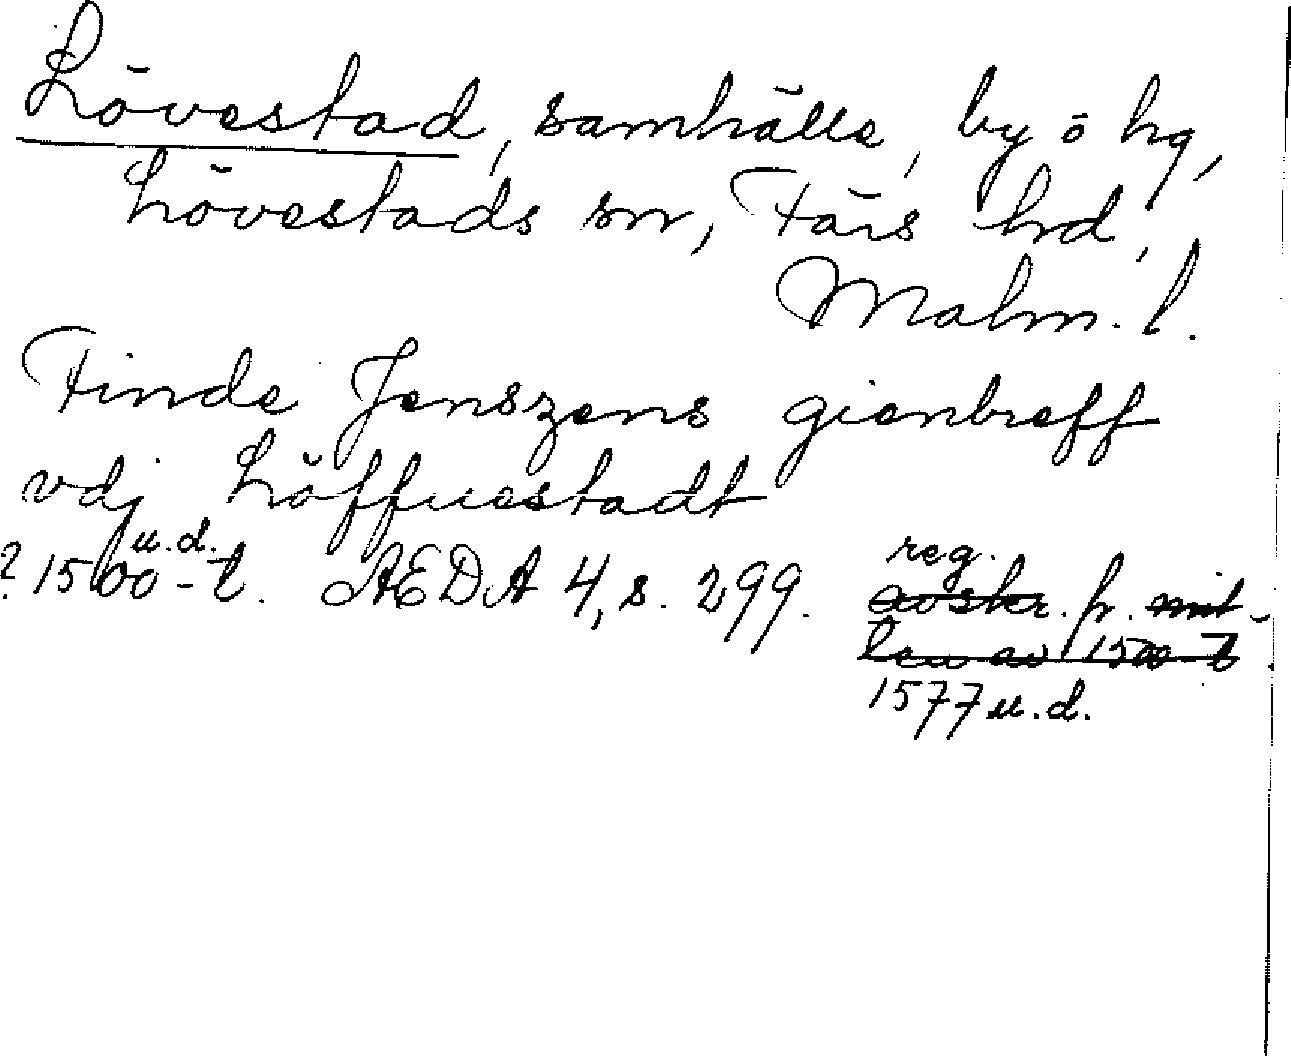 Lövestad, samhälle, by o hg,
Lövestads sn, Färs hrd,
Malm. l.
Finde Jenszens gienbreff
vdj Löffuestadt
u.d. reg.
? 1500-t. AEDA 4, s. 299. avskr. fr. mit-
ten av 1500-t.
1577 u.d.